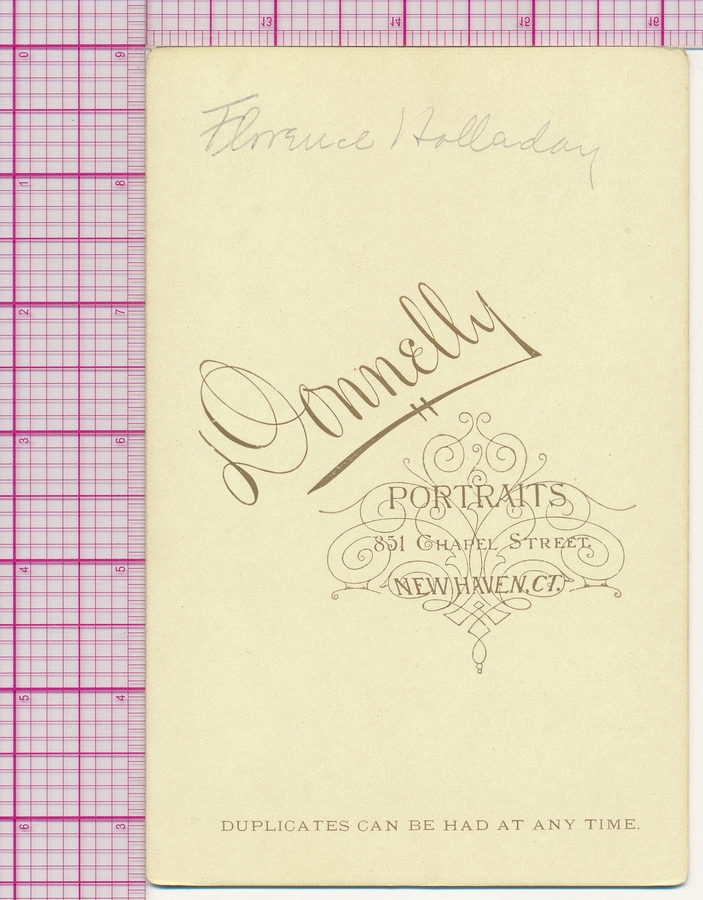 13 14 15 16
0 9
1 8
2 7
3 6
4 5
5 4
6 3
Florence Holladay
Donnelly
PORTRAITS
851 CHAPEL STREET.
NEW HAVEN, CT.
DUPLICATES CAN BE HAD AT ANY TIME.